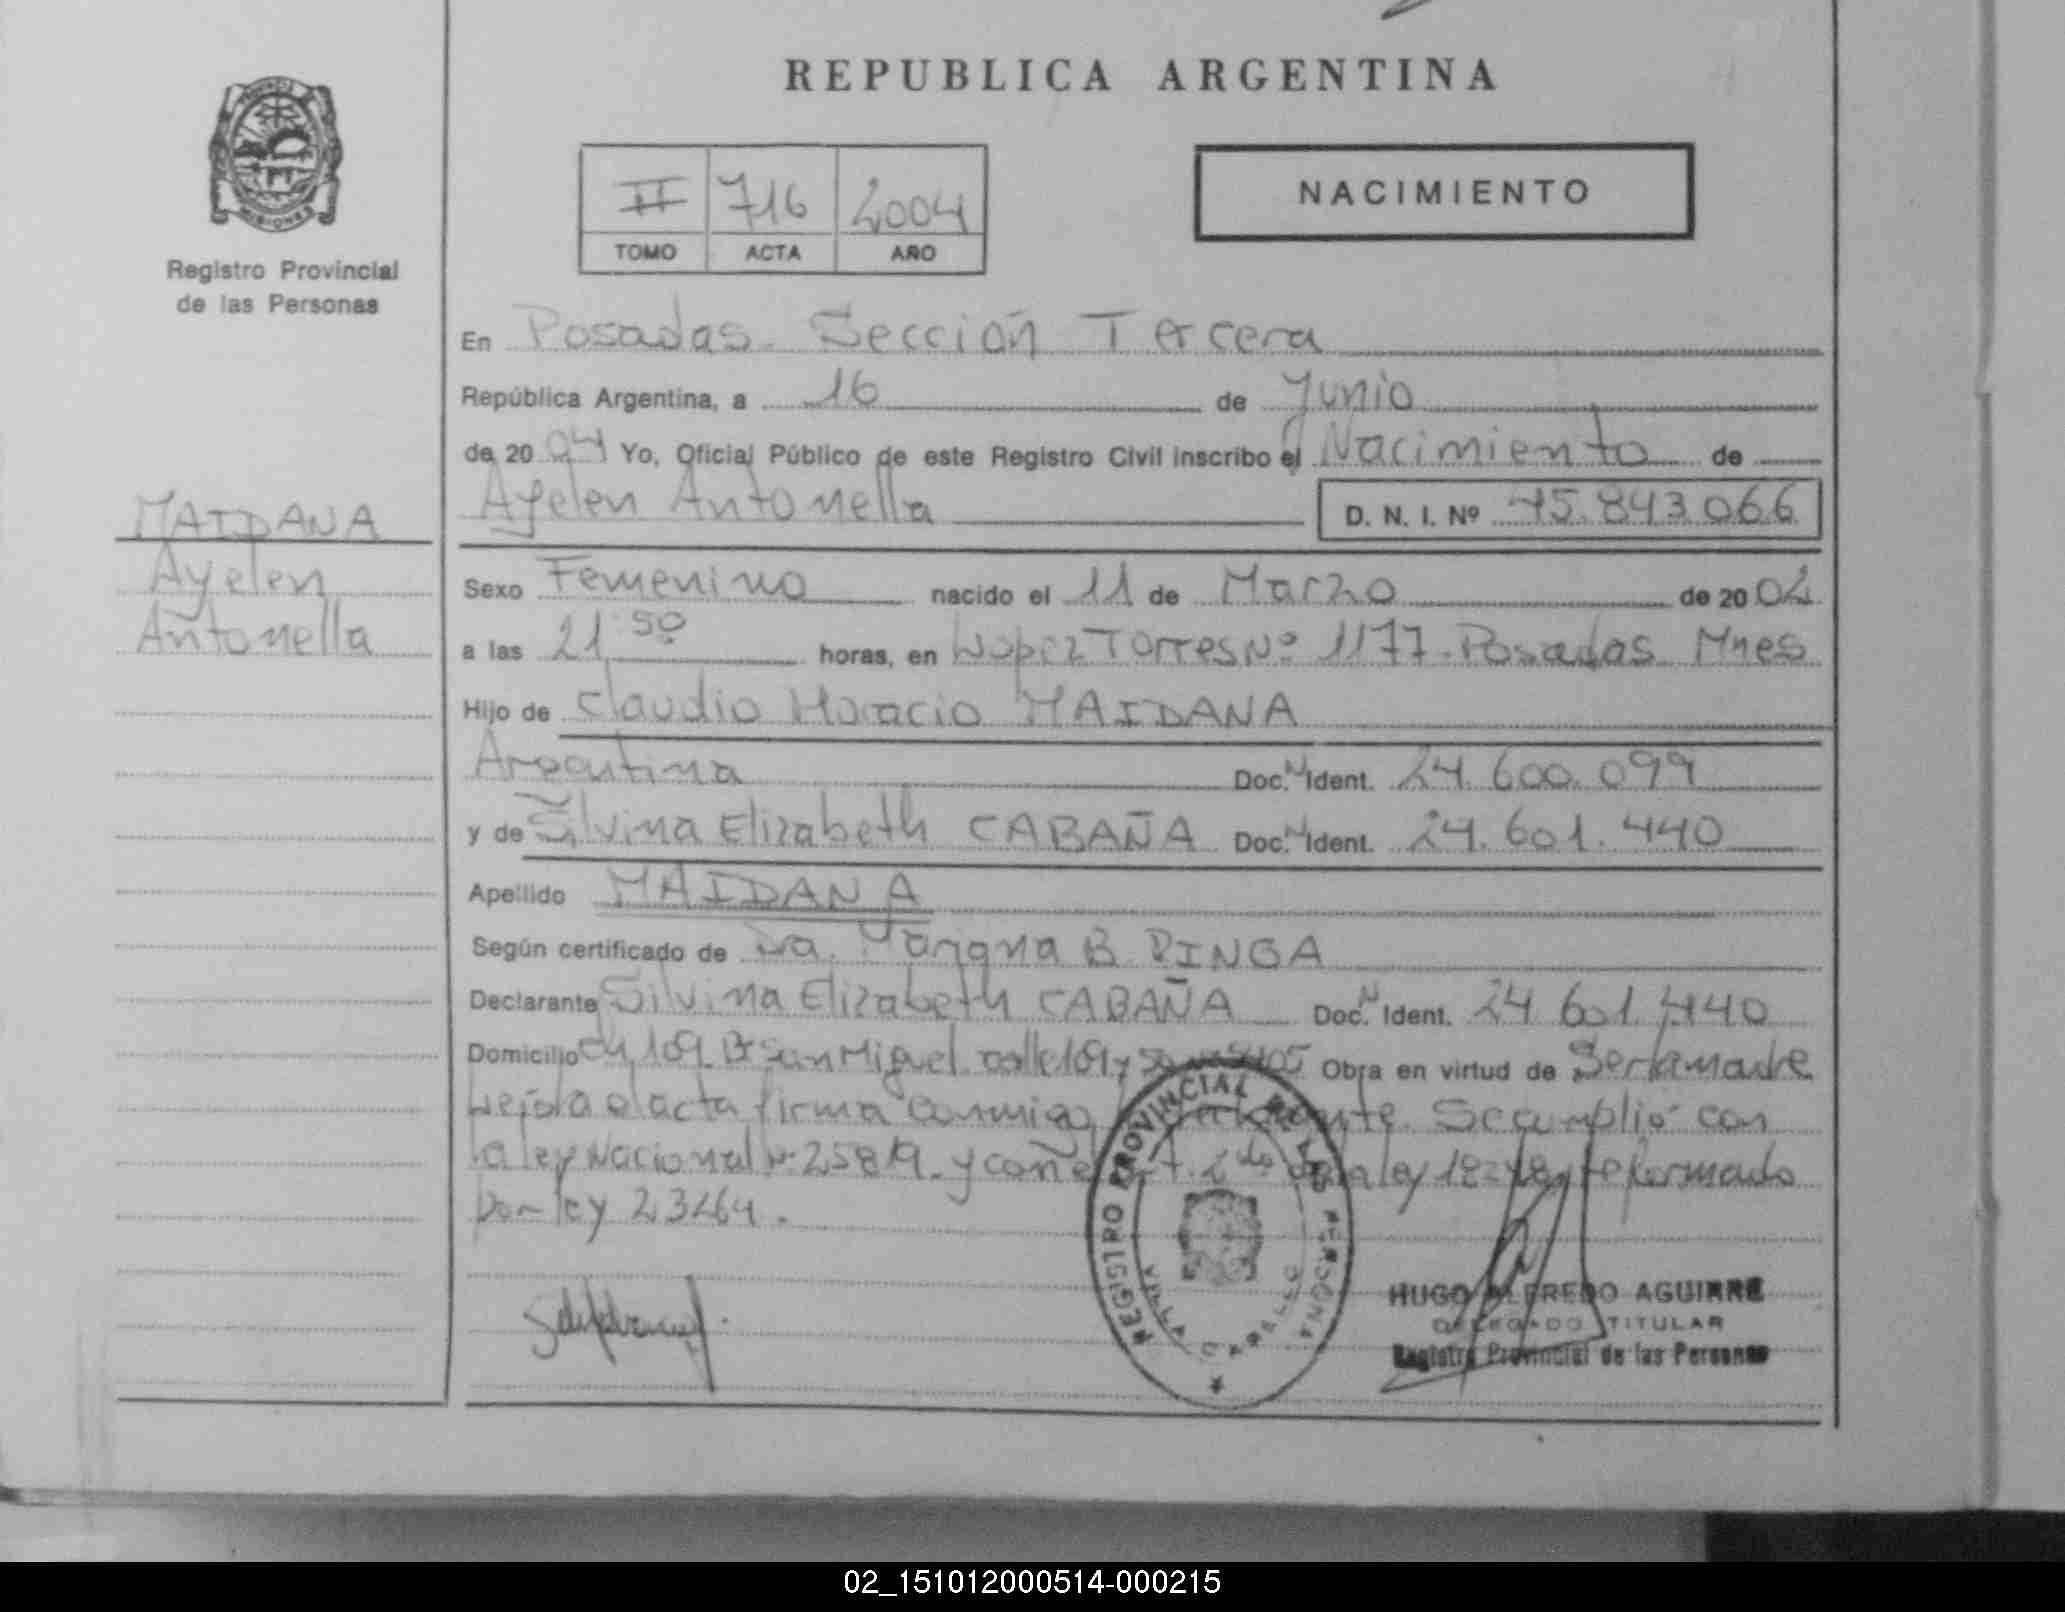 REPUBLICA ARGENTINA
PROVINCIA DE
MISIONES
Registro Provincial
de las Personas
II 716 2004
TOMO ACTA AÑO
NACIMIENTO
En Posadas. Sección Tercera
República Argentina, a 16 de Junio
de 20 04 Yo, Oficial Público de este Registro Civil inscribo el Nacimiento de
MAIDANA
Ayelen
Antonella
Ayelen Antonella D. N. I. Nº 45.843.066
Sexo Femenino nacido el 11 de Marzo de 20 04
a las 21:50 horas, en Lopez Torres Nº 1177. Posadas Mnes
Hijo de Claudio Horacio MAIDANA
Argentina Doc. N Ident. 24.600.099
y de Silvina Elizabeth CABAÑA Doc. N Ident. 24.601.440
Apellido MAIDANA
Según certificado de Dra. Mariana B. PINGA
Declarante Silvina Elizabeth CABAÑA Doc. N Ident. 24 601.440
Domicilio Ch 109 Bº San Miguel calle 109 y Obra en virtud de Ser la madre
Leída el acta firma conmigo declarante. Se cumplió con
la ley Nacional Nº 25819. y con el Art. 2do de la ley 18248, reformado
por ley 23264.
REGISTRO PROVINCIAL DE LAS PERSONAS
VILLA CABELLO
HUGO ALFREDO AGUIRRE
DELEGADO TITULAR
Registro Provincial de las Personas
02_151012000514-000215